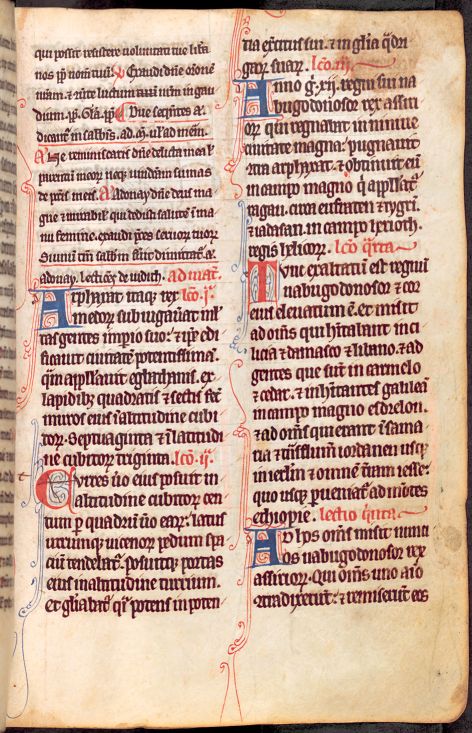 qui possit resistere voluntati tue libe
nos ꝓpt̄ nom̄ tuū. Exaudi dn̄e or̄onē
nr̄am. ⁊ ūte luctum nr̄m in gau
dium. ꝓpt̄. Gl̄a. ꝓpt̄.
dicant᷑ in sabb̄is. ad. ul̄ ad mem̄.
Ne reminiscaris dn̄e delicta mea ul̄
parentū meor̄ neq᷑ vindictam sumas
de pctīs meis. Adonay dn̄e deus ma
gne ⁊ mirabilis qui dedisti salutē ī ma
nu femine. exaudi p̄ces servor̄ tuor̄
adonay. Lectiōes de iudith. ad mat᷑.
Arphaxat itaq᷑ rex lc̄o. j᷑.
medor̄ subiugauat ml̄
tas gentes imp̄io suo. ⁊ ip̄e edi
ficauit ciuitatē potentissimā.
qm̄ appellauit egbathanis. ex
lapidib᷑ quadratis ⁊ sectis. fec̄
muros eius ī altitudine cubi
tor̄. septuaginta ⁊ ī latitudi
ne cubitor̄ triginta. lc̄o. ij᷑.
Turres ūo eius posuit in
altitudine cubitor̄ cen
tum p̄ quadrū ūo ear̄. latus
utrumq᷑ vicenor̄ pedum spa
ciū tendebat᷑. posuitq᷑ portas
eius in altitudine turrium.
et gl̄iabat᷑ q̄si potens in poten
tia exercitus sui. ⁊ in gl̄ia q̄dri
gar̄ suar̄. lc̄o. iij.
Anno g̊. xij. regni sui na
bugodonosor rex assiri
or̄ qui regnabat in niniue
ciuitate magna. pugnauit
cont᷑a arphaxat. ⁊ obtinuit eū
in campo magno q̄ appellat᷑
ragau. circa eufraten ⁊ tygrī.
⁊ iadasan. in campo
regis
Tunc exaltatū est regnū
nabugodonosor ⁊ cor
eius eleuatum ē. et misit
ad om̄s qui hītabant in ci
licia ⁊ damasco ⁊ libano. ⁊ ad
gentes que sūt in carmelo
⁊ cedar. ⁊ inhītantes galileā
in campo magno esdrelon.
⁊ ad om̄s qui erant in sama
ria ⁊ t̄ns flumē iordanen usq᷑
in ier̄lm̄ ⁊ omnē t̄ram iesse.
quo usq᷑ p̄ueniat᷑ ad mōtes
ethiopie. lectio q̄nta
Ad hos om̄s misit nunti
os nabugodonosor rex
assirior̄. Qui om̄s uno aīo
cont᷑adixerūt. ⁊ remiserūt eos